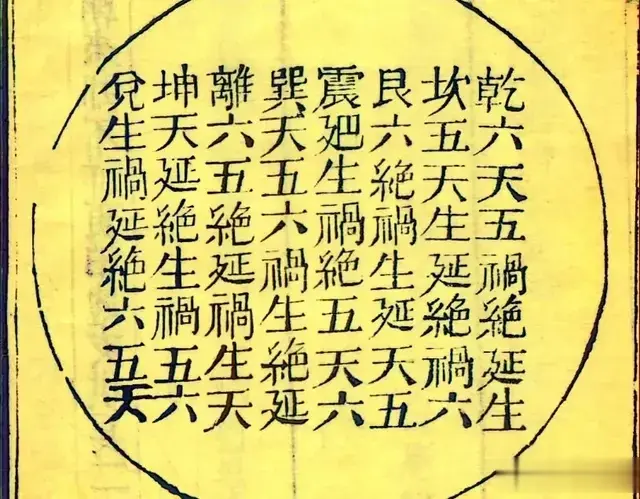 乾六天五禍絶延生
坎五天生延絶禍六
艮六絶禍生延天五
震延生禍絶五天六
巽天五六禍生絶延
離六五絶延禍生天
坤天延絶生禍五六
兊生禍延絶六五天